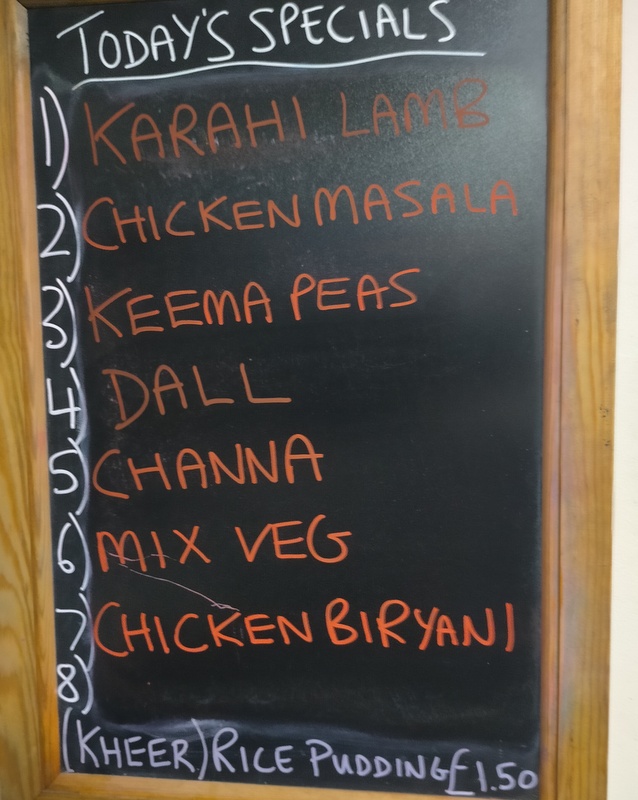 TODAY'S SPECIALS
1) KARAHI LAMB
2) CHICKEN MASALA
3) KEEMA PEAS
4) DALL
5) CHANNA
6) MIX VEG
7) CHICKEN BIRYANI
8)
(KHEER) RICE PUDDING £1.50